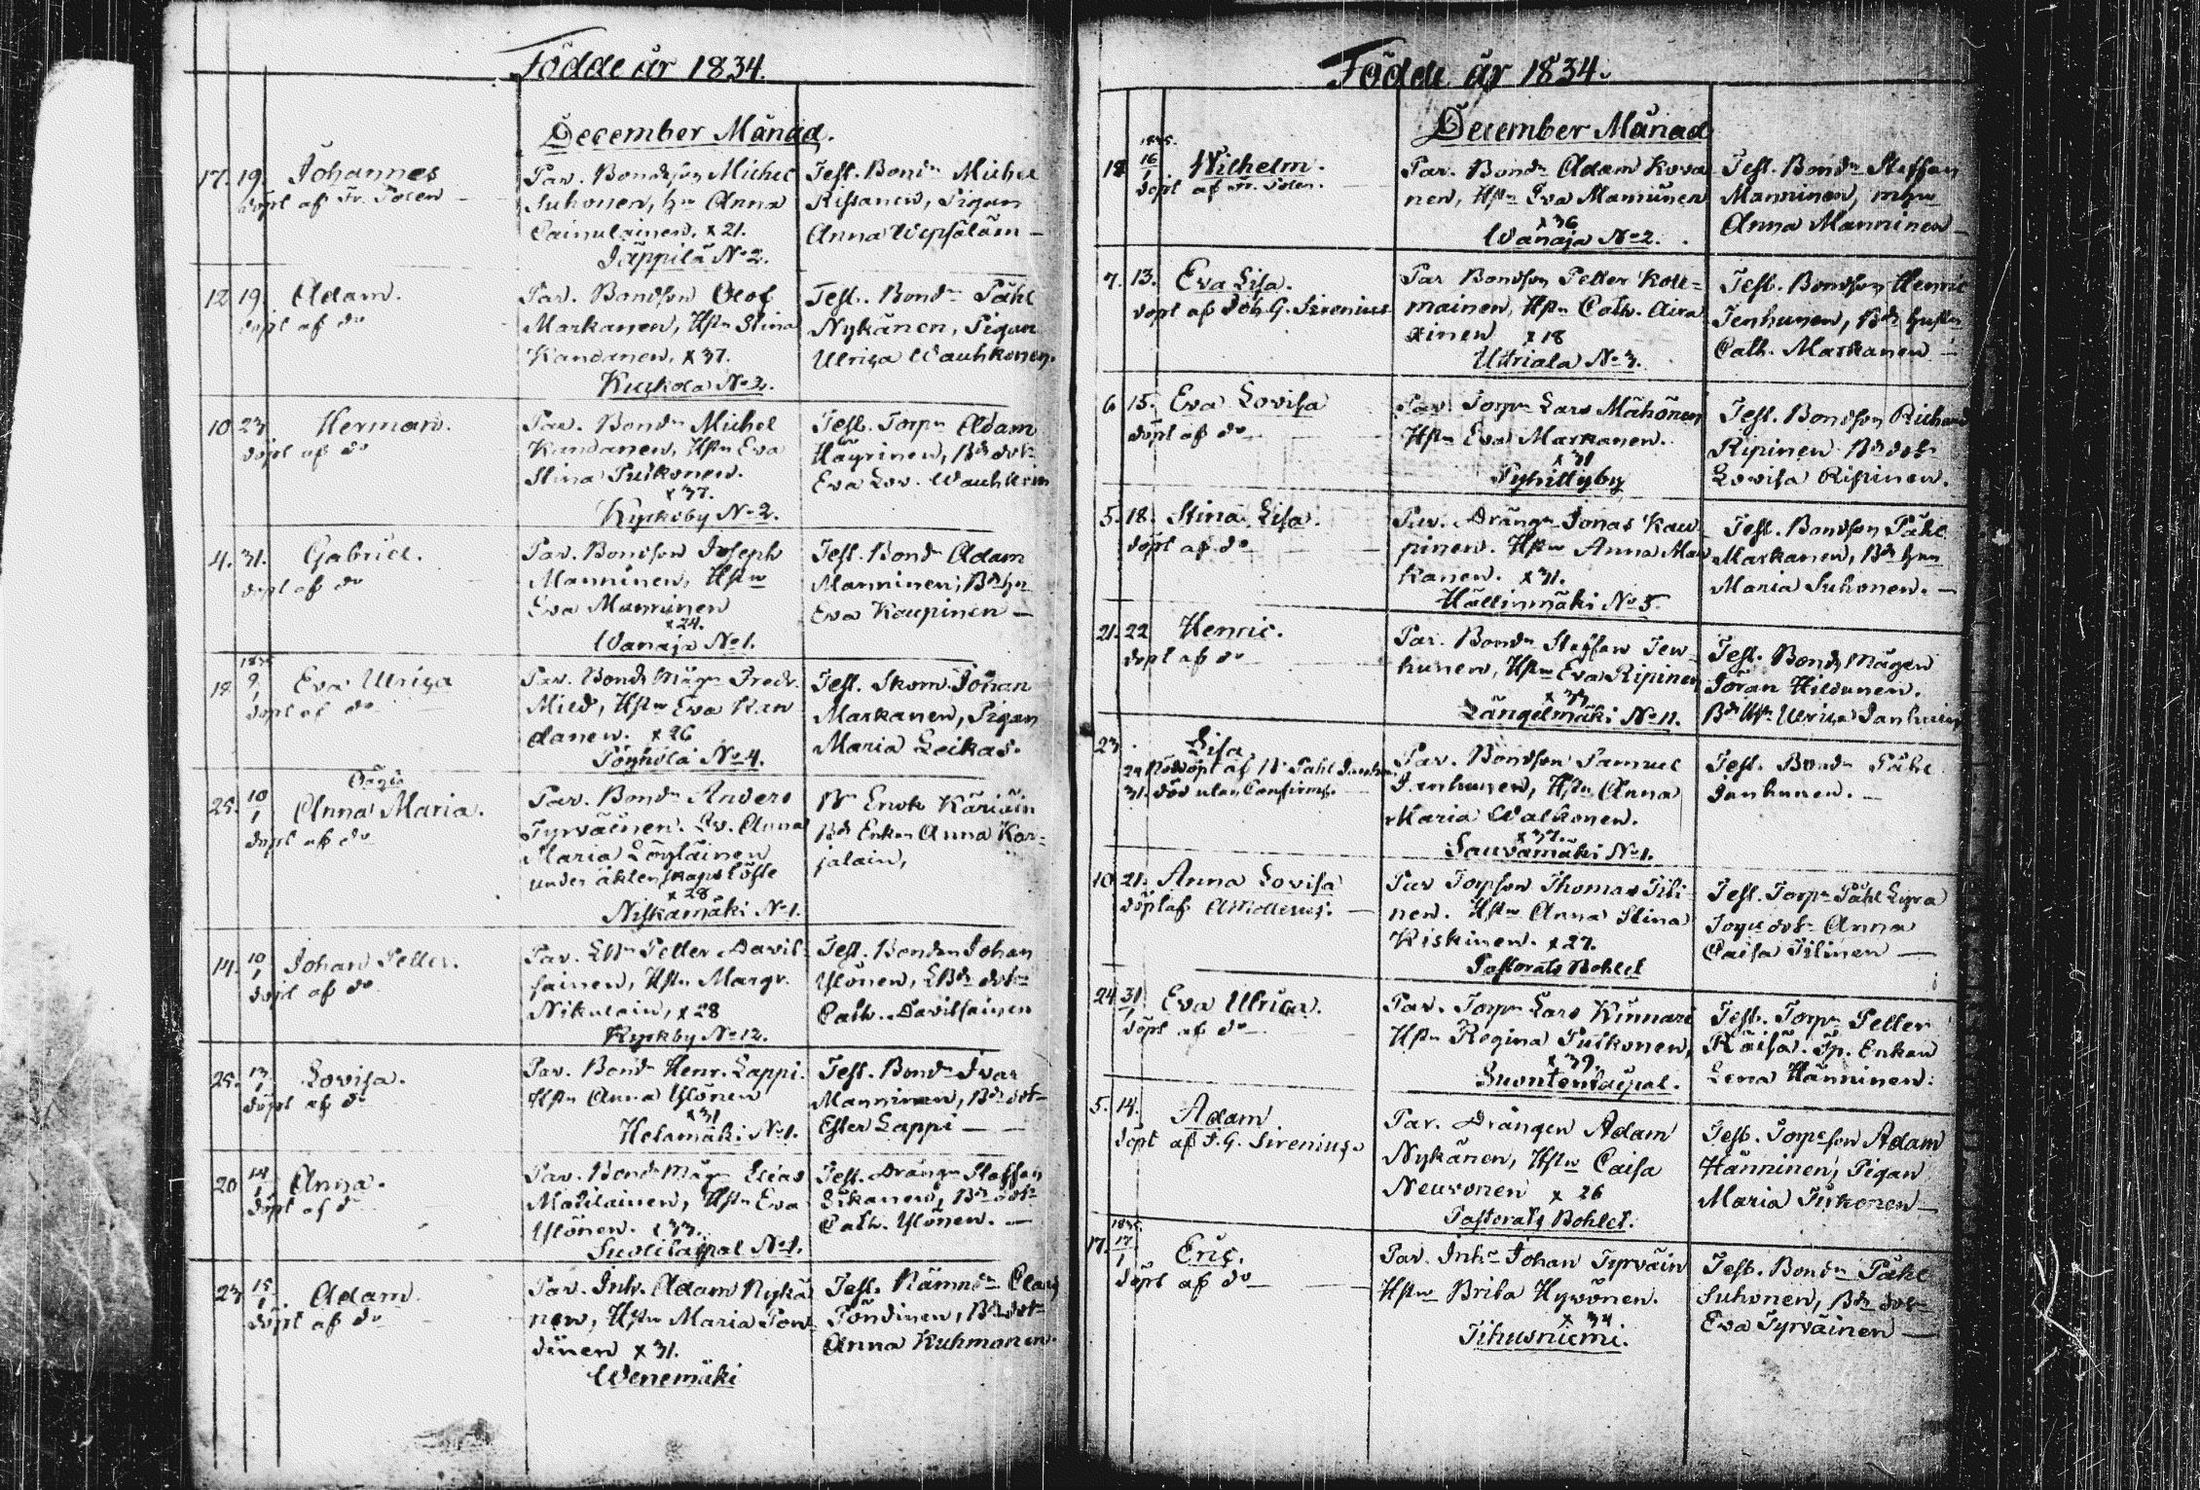 Födde år 1834.
December Månad.
17. 19. Johannes
döpt af Fr. Polen
Par. Bondeson Michel
Suhonen, hu Anna
Painulainen. x 21.
Jäppilä No 2.
Test. Bondn Michel
Rissanen, Pigan
Anna Wepsäläin
12 19. Adam.
döpt af do
Par. Bondson Olof
Markanen, Hstn Stina
Kandanen, x 37.
No 2.
Test. Bondn Påhl
Nykänen, Pigan
Ulrica Wauhkonen.
10 23 Herman.
döpt af do
Par. Bondn Michel
Kandanen, Hstn Eva
Stina Pulkonen.
x 37.
Kyrkoby No 2.
Test. Torpn Adam
Häyrinen, Bds dotr
Eva Lov. Wauhkonen
4. 31. Gabriel.
döpt af do
Par. Bondson Joseph
Manninen, Hstru
Eva Manninen
x 24.
Wanaja No 1.
Test. Bondn Adam
Manninen, Bds hu
Eva Kaupinen
1835
18 9/1 Eva Ulrica
döpt af do
Par. Bonds Mågn Fredr.
Mild, Hstn Eva Kan
danen. x 26
Pöyhölä No 4.
Test. Skom. Johan
Markanen, Pigan
Maria Leikas.
Oägta
25. 10/1 Anna Maria.
döpt af do
Par. Bondn Anders
Tyrväinen. Anna
Maria Löyläinen
under äktenskaps löfte
x 28
Niskamäki No 1.
Bn Enok Käriäin
Bds Enkan Anna Kar-
jalain,
14. 10/1 Johan Petter.
döpt af do
Par. Petter Davil-
sainen, Hstn Margr.
Nikulain, x 28
Kyrkby No 12.
Test. Bonden Johan
Ylönen, dotr
Cath. Davilsainen
25. 13/1 Lovisa.
döpt af do
Par. Bondn Henr. Lappi.
Hstn Anna Ylönen
x 31
Helamäki No 1.
Test. Bondn Ivar
Manninen, Bds dotr
Ester Lappi
20 14/1 Anna.
döpt af do
Par. Bonds Mågn Elias
Matilainen, Hstn Eva
Ylönen. x 33.
No 1.
Test. Drängn Staffan
Bds dotr
Cath. Ylönen.
23 15/1 Adam.
döpt af do
Par. Inh. Adam Nykä
nen, Hstn Maria Pön
dinen x 31.
Wenemäki
Test. Nämndn Claes
Pöndinen, Bds dotr
Anna Kuhmonen.
Födde år 1834.
December Månad
1835.
18 16/1 Wilhelm.
döpt af Fr. Polen.
Par. Bondn Adam Kova
nen, Hstn Eva Manninen
x 36
Wanaja No 2.
Test. Bondn Staffan
Manninen,
Anna Manninen
7. 13. Eva Lisa.
döpt af Joh. G. Sirenius
Par Bondson Petter Kott-
mainen, Hstn Cath. Aira
xinen x 18
Utriala No 3.
Test. Bondson Henric
Jenhunen, Bds hustru
Cath. Markanen
6 15. Eva Lovisa
döpt af do
Par. Torpn Lars Mähönen
Hstn Eva Markanen.
x 31
Test. Bondson Richard
Ripinen Bds dotr
Lovisa Ripinen.
5. 18. Stina Lisa.
döpt af do
Par. Drängn Jonas Kau
pinen. Hstru Anna Mar
kanen. x 31.
Hällinmäki No 5.
Test. Bondson Påhl
Markanen, Bds hun
Maria Suhonen.
21. 22 Henric.
döpt af do
Par. Bondn Staffan Jen-
hunen, Hstru Eva Ripinen
x 33
Längelmäki No 11.
Test. Bonds Mågen
Göran Hildunen.
Bds Hstr Ulrica Janhuin
23 Lisa
24 Nöddöpt af Bn Påhl Janhun.
31. död utan Confirma.
Par. Bondson Samuel
Janhunen, Hstn Anna
Maria Walkonen.
x 37.
Sauvamäki No 1.
Test. Bondn Påhl
Janhunen.
10 21. Anna Lovisa
döpt af A Mollerus.
Par Torpson Thomas Tili-
nen. Hstru Anna Stina
Kiskinen. x 27.
Pastorats Bohlet
Test. Torpn Påhl Lyra
Torps dotr Anna
Caisa Tilinen
24 31/1 Eva Ulrica.
döpt af do
Par. Torpn Lars Kinnari
Hstn Regina Pulkonen,
x 39
Suontentaipal.
Test. Torpn Petter
Räisä. Tp. Enkan
Lena Hänninen.
5. 14. Adam
döpt af J. G. Sirenius.
Par. Drängen Adam
Nykänen, Hstru Caisa
Neuvonen x 26
Pastorats Bohlet.
Test. Torpesson Adam
Hänninen, Pigan
Maria Pirkonen
1835.
17. 17/1 Eric.
döpt af do
Par. Inhn Johan Tyrväin
Hstru Brita Hyvönen.
x 34
Tihusniemi.
Test. Bondn Påhl
Suhonen, Bds dotr
Eva Tyrväinen